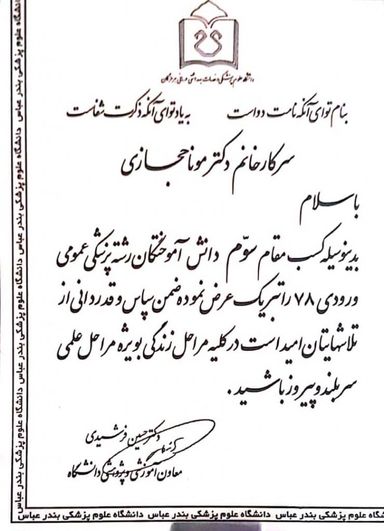 دانشگاه علوم پزشکی و خدمات بهداشتی درمانی هرمزگان
بنام توای آنکه نامت دواست به یاد توای آنکه ذکرت شفاست
سرکار خانم دکتر مونا حجازی
با سلام
بدینوسیله کسب مقام سوّم دانش آموختگان رشته پزشکی عمومی
ورودی ۷۸ را تبریک عرض نموده ضمن سپاس و قدردانی از
تلاشهایتان امید است در کلیه مراحل زندگی بویژه مراحل علمی
سربلند و پیروز باشید.
دکتر حسین فرشیدی
معاون آموزشی و پژوهشی دانشگاه
دانشگاه علوم پزشکی بندر عباس دانشگاه علوم پزشکی بندر عباس دانشگاه علوم پزشکی بندر عباس